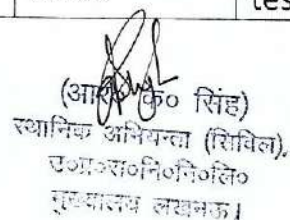 tes
(आर० के० सिंह)
स्थानिक अभियन्ता (सिविल),
उ०प्र०रा०नि०नि०लि०
मुख्यालय लखनऊ।